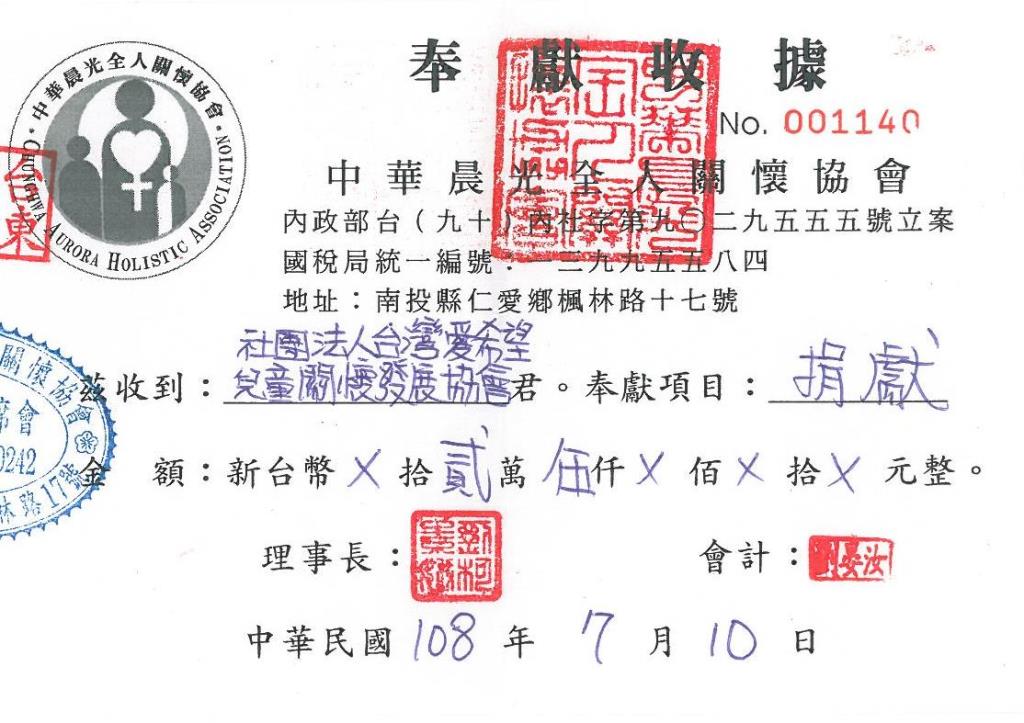 奉獻收據
No. 001140
中華晨光全人關懷協會
CHUNGHWA AURORA HOLISTIC ASSOCIATION
中華晨光全人關懷協會
內政部台（九十）內社字第九〇二九五五五號立案
國稅局統一編號：一三九九五五八四
地址：南投縣仁愛鄉楓林路十七號
社團法人台灣愛希望
兒童關懷發展協會
茲收到：君。奉獻項目：捐獻
金 額：新台幣X拾貳萬伍仟X佰X拾X元整。
關懷協會
席會
0242
林路17號
理事長：
會計：劉晏汝
中華民國108年7月10日